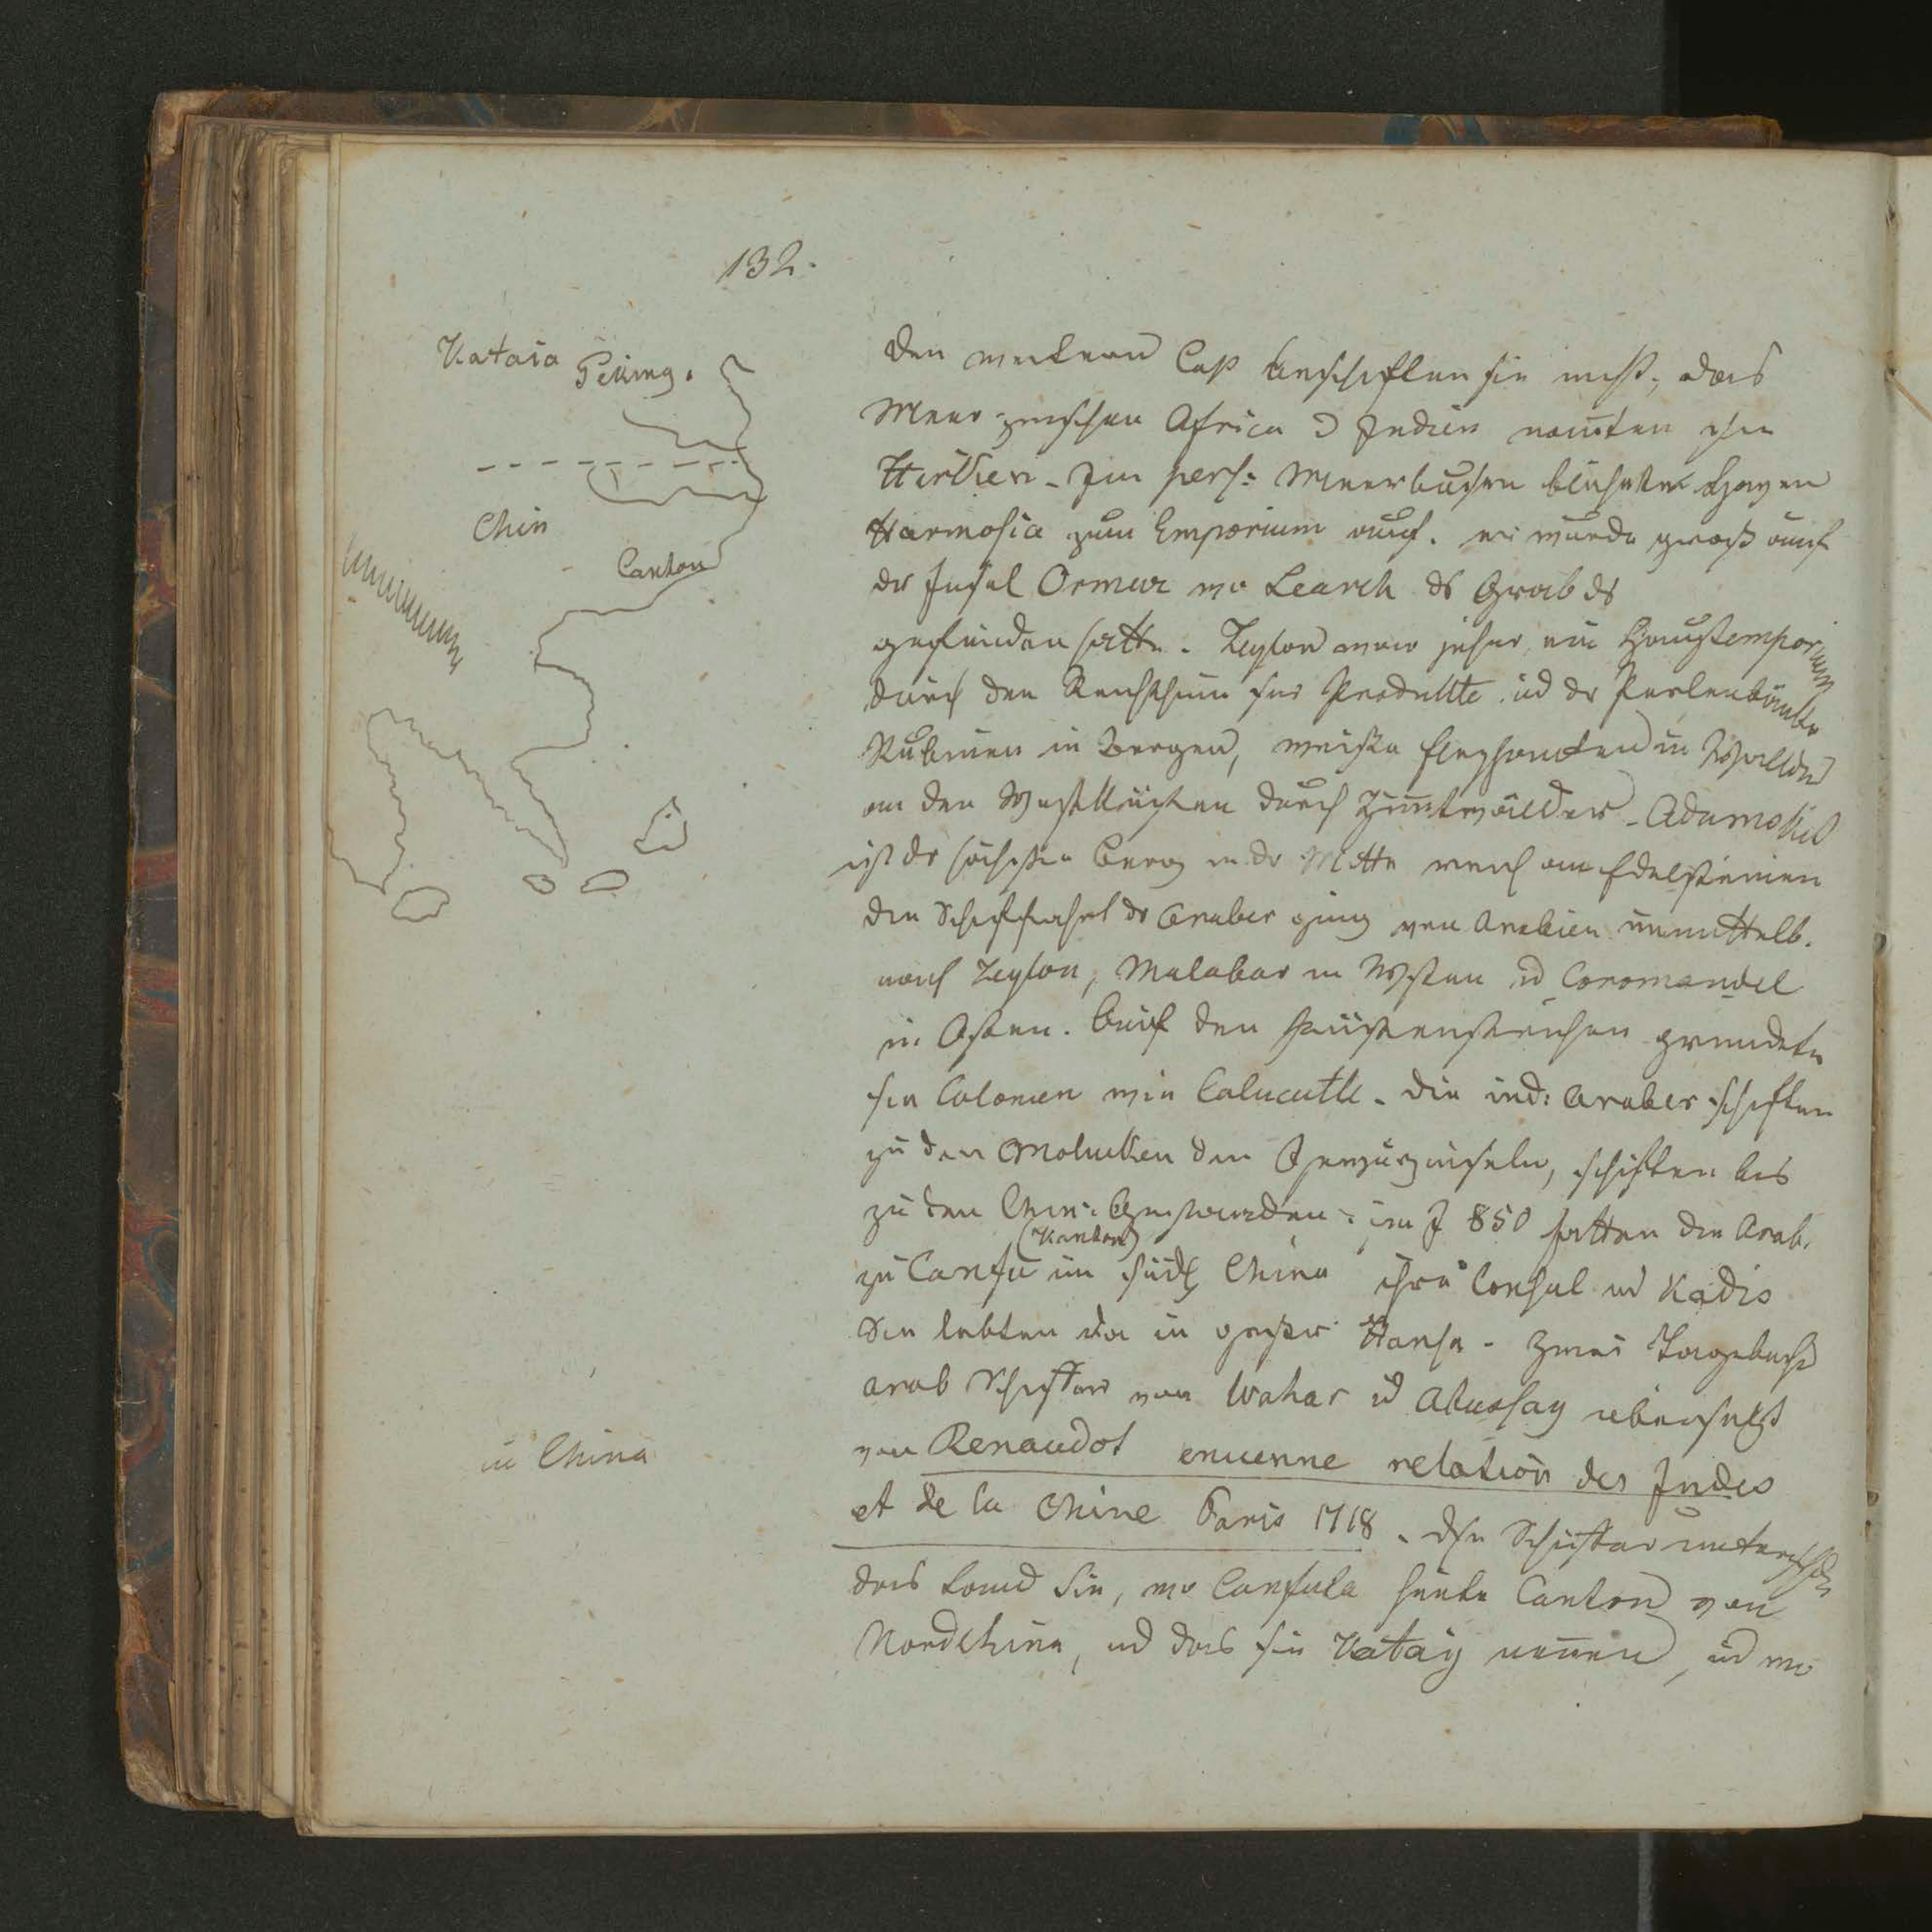 132.
Kataia
Peking.
Chin
Canton
den weitern Cap beschifften sie nicht, das
Meer zwischen Africa u Indien nannten sie
Im pers: Meerbusen blühte Hafen
Harmosia zum Emporium auf. er wurde groß auf
der Insel Ormur wo Learch ds Grab ds
gefunden hatte. Zeylon war jeher ein Hauptemporium
durch den Reichthum sr Produkte ud der Perlenbänke
Rubinen in Bergen, weiße Elephanten in Wäldern
an den Westküsten durch Zimtwälder - Adamspik
ist der höchste Berg in der Mitte reich an Edelsteinen
die Schiffahrt der Araber ging von Arabien unmittelb.
nach Zeylon, Malabar in Westen ud Coromandel
in Osten. Auf den Küstenstrichen gründeten
sie Colonien wie Calucutte - die ind: Araber schifften
zu den Molukken den Gewürzinseln, schifften bis
zu den Chin: im J 850 hatten die Arab.
(Kanton)
zu Canfu im südl China ihre Consul ud Kadis
Sie lebten da in großer Hansa - Zwei Tagebüch
arab Schiffer von Wahar ud Abussay übersetzt
von Renaudot encienne relation des Indes
in China
et de la Chine Paris 1718. dse Schiffer untersch
das Land Sin, wo Canfula heute Canton von
Nordchina, ud das sie Katay nennen, ud wo